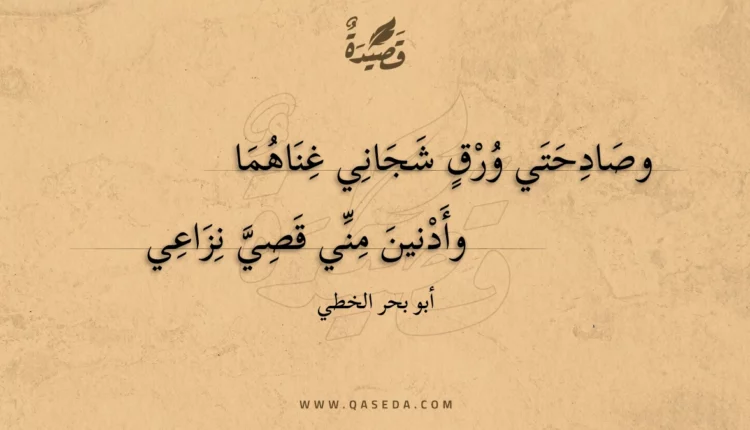 قَصِيْدَةٌ
وصَادِحَتَي وُرْقٍ شَجَانِي غِنَاهُمَا
وأَدْنينَ مِنِّي قَصِيَّ نِزَاعِي
أبو بحر الخطي
WWW.QASEDA.COM